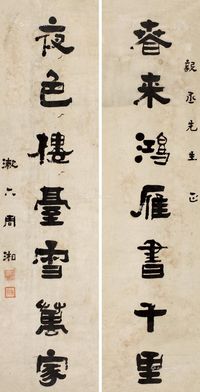 毅丞先生正
春来鴻雁書千里
夜色樓臺雪萬家
漱六周湘